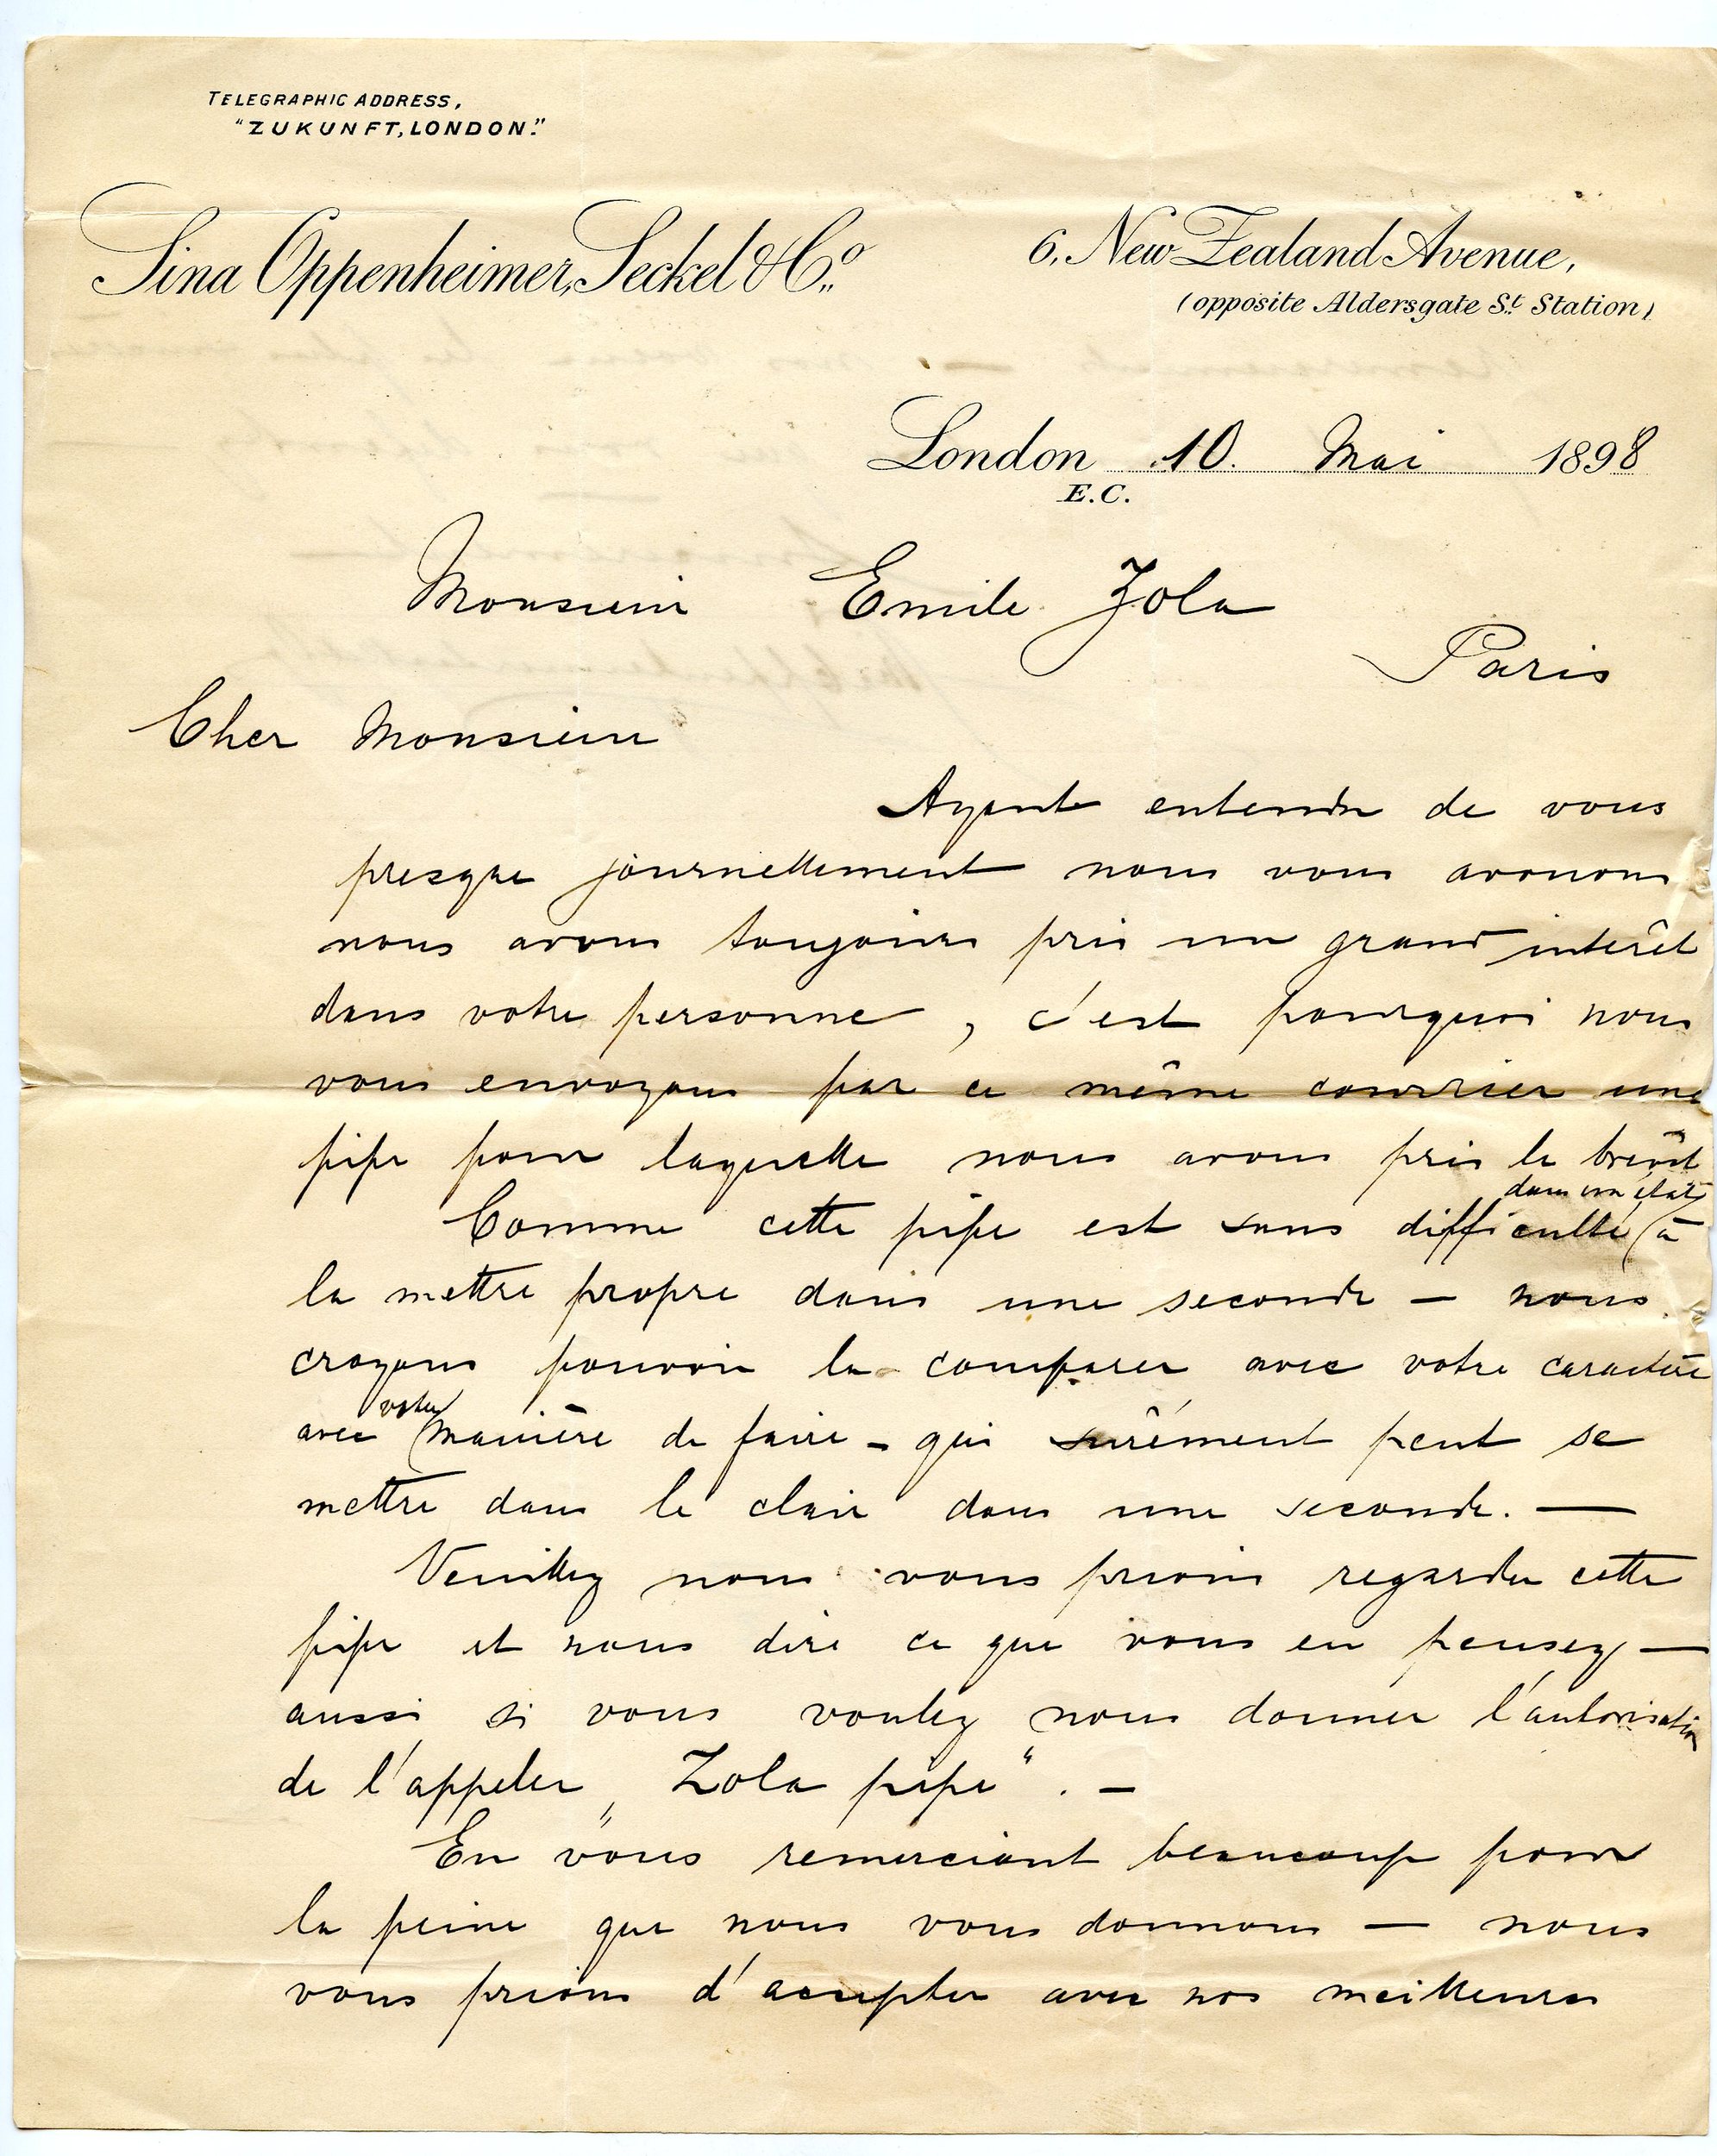 TELEGRAPHIC ADDRESS,
"ZUKUNFT, LONDON."
Sina Oppenheimer, Seckel & Co.,
6, New Zealand Avenue,
(opposite Aldersgate St. Station)
London 10. Mai 1898
E.C.
Monsieur Emile Zola
Paris
Cher Monsieur
Ayant entendu de vous
presque journellement nous vous avouons
nous avons toujours pris un grand interêt
dans votre personne, c'est pourquoi nous
vous envoyons par ce même courrier une
pipe pour laquelle nous avons pris le brevêt
dans un état
Comme cette pipe est sans difficulté à
la mettre propre dans une seconde — nous
croyons pouvoir la comparer avec votre caractère
votre
avec manière de faire - qui surêment peut se
mettre dans le clair dans une seconde. —
Veuillez nous vous prions regarder cette
pipe et nous dire ce que vous en pensez —
aussi si vous voulez nous donner l'autorisation
de l'appeler „Zola pipe". —
En vous remerciant beaucoup pour
la peine que nous vous donnons — nous
vous prions d'accepter avec nos meilleures